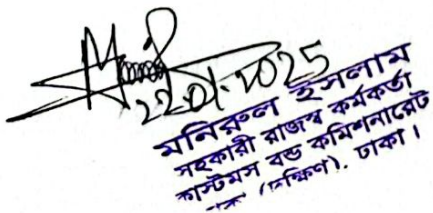 22.01.2025
মনিরুল ইসলাম
সহকারী রাজস্ব কর্মকর্তা
কাস্টমস বন্ড কমিশনারেট
(দক্ষিণ). ঢাকা।